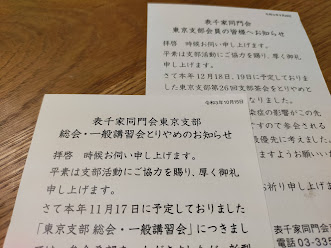 表千家同門会
東京支部会員の皆様へお知らせ
拝啓 時候お伺い申し上げます。
平素は支部活動にご協力を賜り、厚く御礼
申し上げます。
さて本年12月18日、19日に予定しておりま
した東京支部第26回支部茶会をやむ
なりました。
染症の影響がこの先
ですので参会される
優先に考えました。
ますようお願いいた
祈り申し上げます。
表千家同門会
電話 03-33
表千家同門会東京支部
総会・一般講習会とりやめのお知らせ
拝啓 時候お伺い申し上げます。
平素は支部活動にご協力を賜り、厚く御礼
申し上げます。
さて本年11月17日に予定しておりました
「東京支部 総会・一般講習会」につきまし